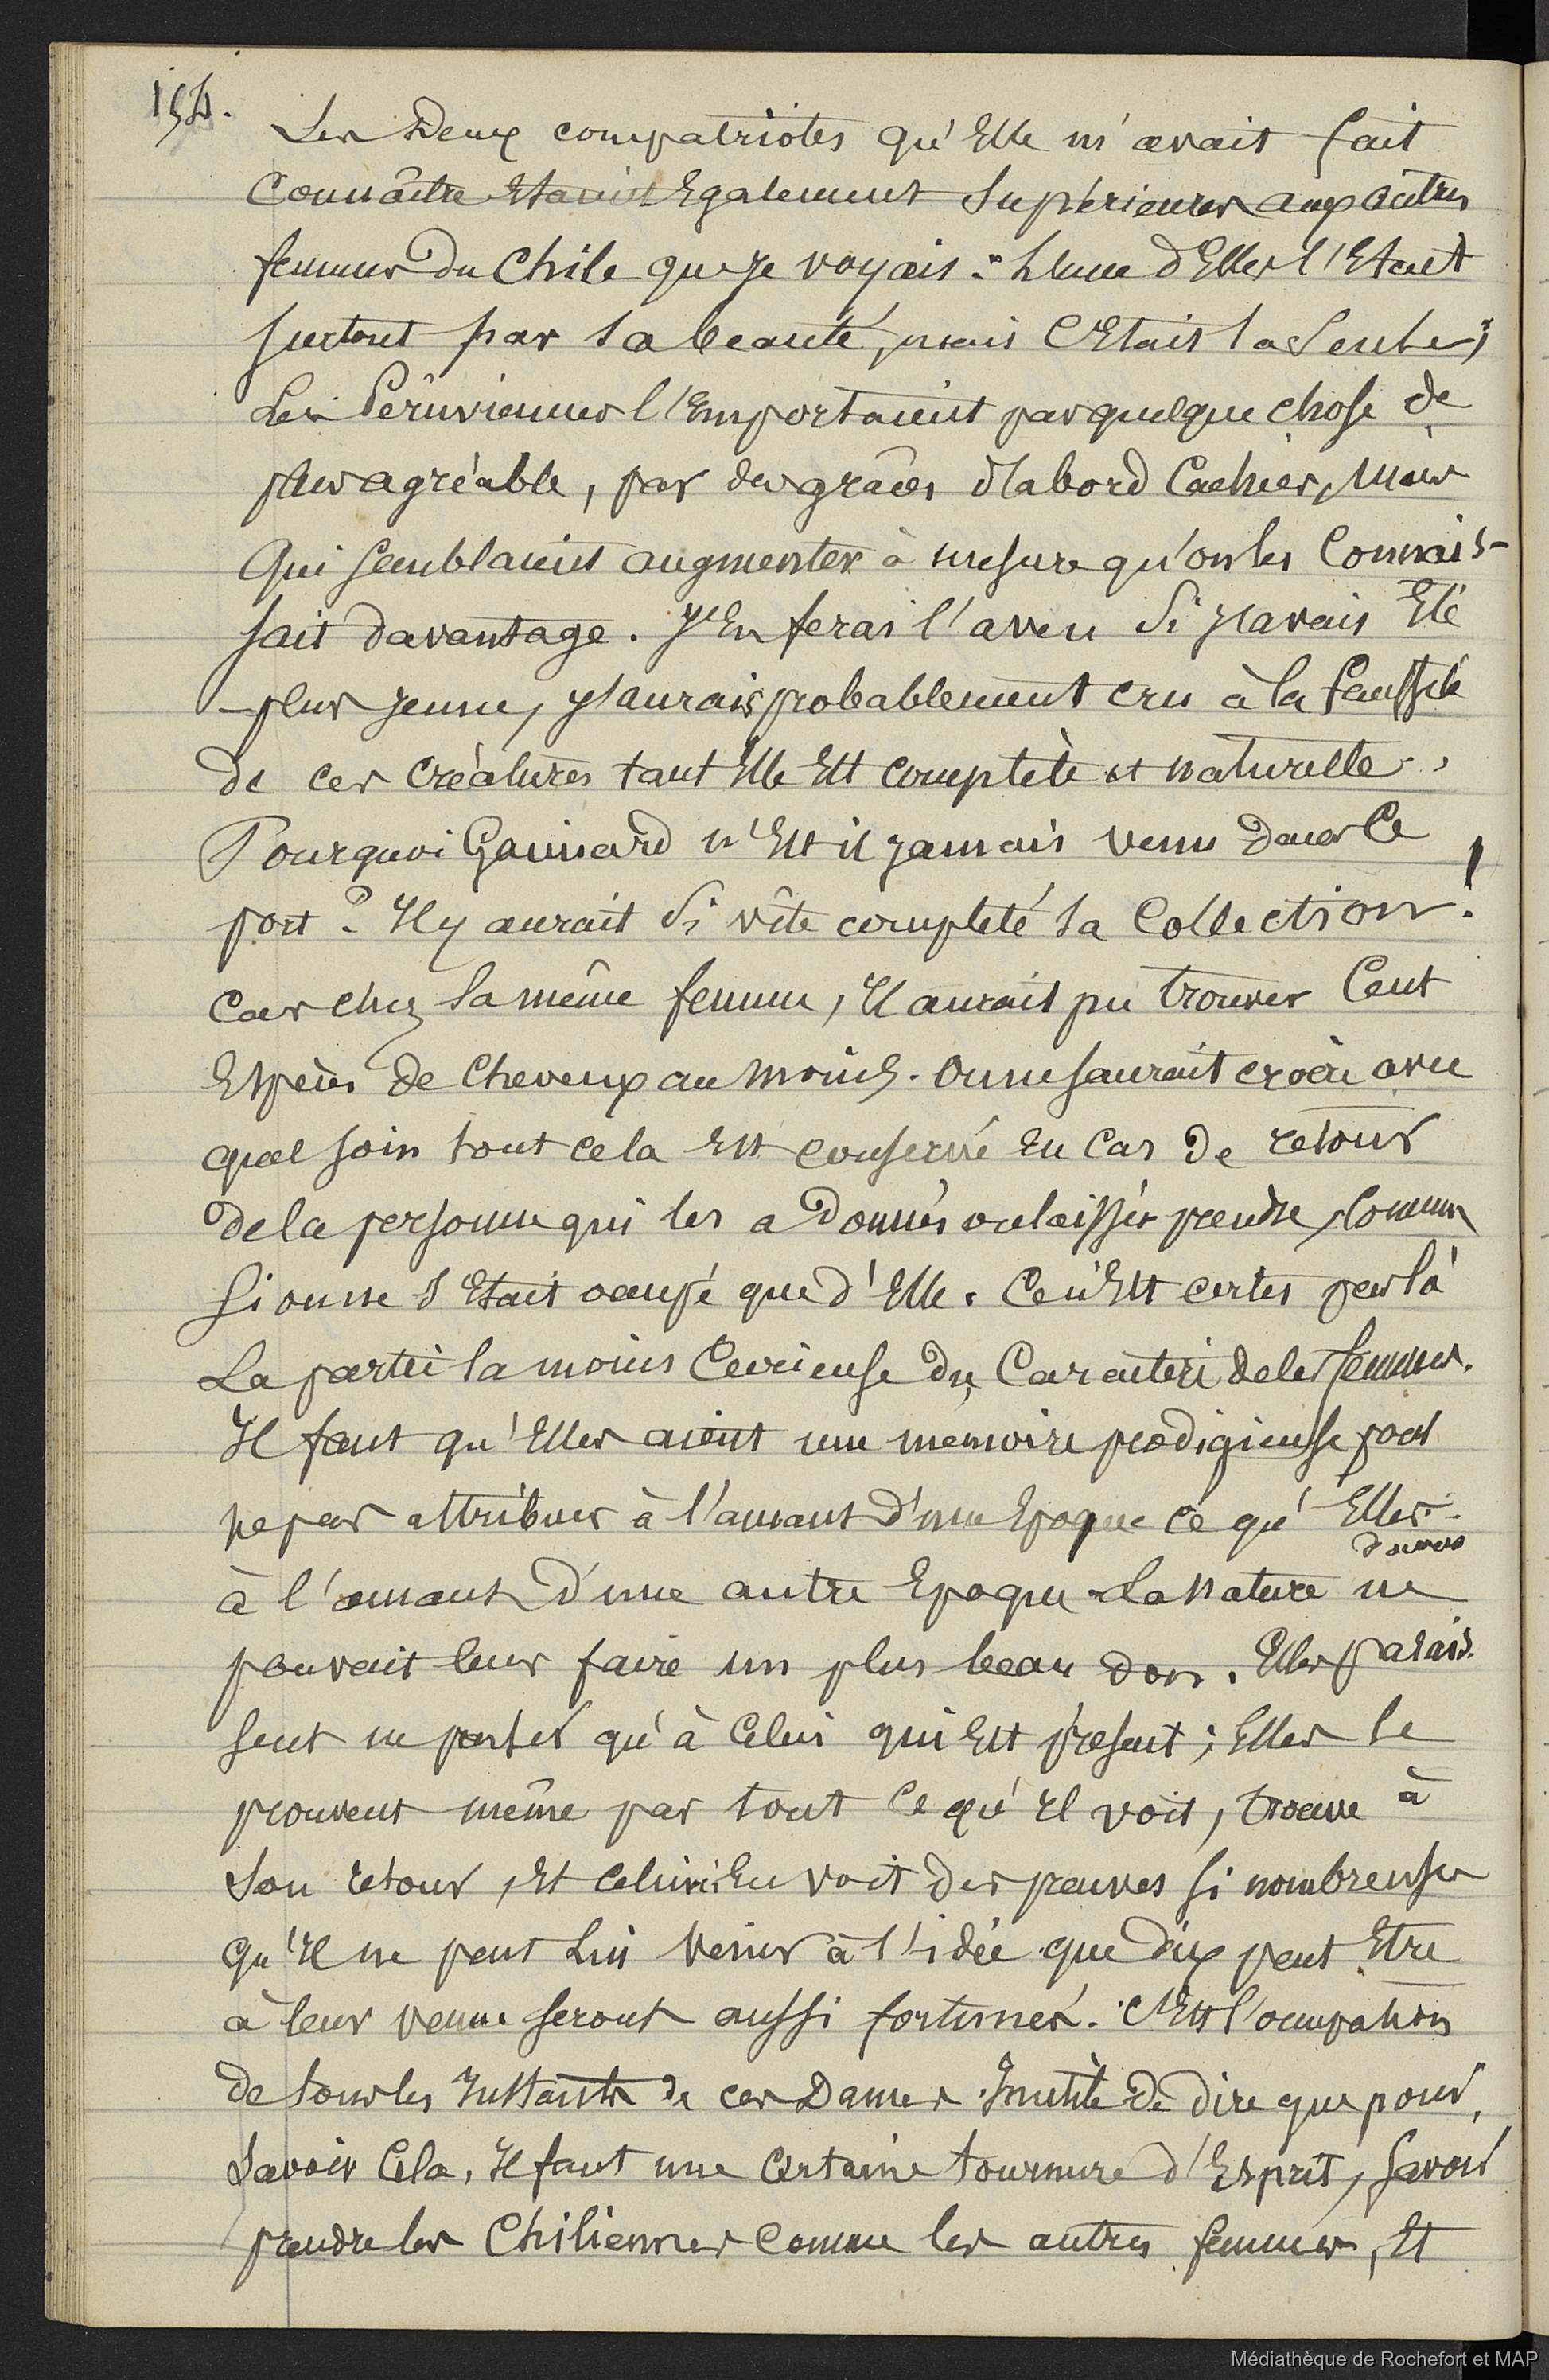 154.
Les Deux compatriotes qu'Elle m'avait fait
Connaître Etaient Egalement Supérieures aux autres
femmes du Chili que je voyais. L'une d'Elles l'Etait
surtout par sa beauté, mais C'Etait la Seule;
Les Péruviennes l'Emportaient par quelque chose de
plus agréable, par des grâces d'abord Cachées, Mais
Qui semblaient augmenter à mesure qu'on les Connais-
sait davantage. J'En ferai l'aveu Si j'avais Eté
plus jeune, j'aurais probablement cru à la fausseté
de ces créatures tant Elle Est complète et naturelle.
Pourquoi Gaimard n'Est il jamais venu dans Ce
port? Il y aurait Si vite completé sa Collection!
Car chez la même femme, Il aurait pu trouver Cent
Espèces de Cheveux au moins. On ne saurait croire avec
quel soin tout cela Est conservé En Cas de retour
de la personne qui les a Donnés ou laissés prendre, Comme
si on ne s'Etait occupé que d'Elle. Ce n'Est certes pas là
La partie la moins Curieuse du Caractère de les femmes.
Il faut qu'Elles aient une memoire prodigieuse pour
ne pas attribuer à l'amant d'une Epoque Ce qu'Elles
à l'amant d'une autre Epoque. La Nature ne
pouvait leur faire un plus beau don. Elles parais-
sent ne penser qu'à Celui qui Est présent; Elles le
prouvent même par tout Ce qu'Il voit, trouve à
Son retour, Et Celui ci En voit des preuves si nombreuses
Qu'Il ne peut Lui Venir à l'idée que dix peut Etre
à leur venue seront aussi fortunés. C'Est l'occupation
de tous les Instants de ces Dames. Inutile de dire que pour
Savoir Cela, Il faut une Certaine tournure d'Esprit, Savoir
prendre les Chiliennes Comme les autres femmes, Et
Médiathèque de Rochefort et MAP